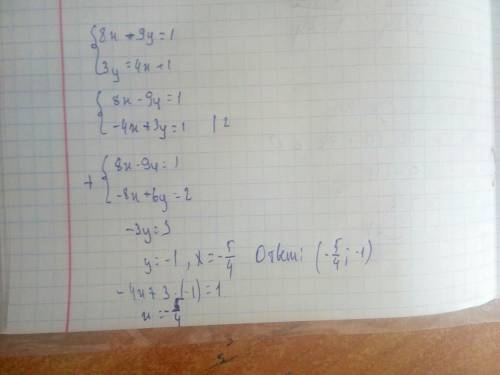 {8x - 9y = 1
{3y = 4x + 1
{8x - 9y = 1
{-4x + 3y = 1 | 2
+ {8x - 9y = 1
{-8x + 6y = 2
-3y = 3
y = -1, x = -5/4 Ответ: (-5/4; -1)
-4x + 3·(-1) = 1
x = -5/4